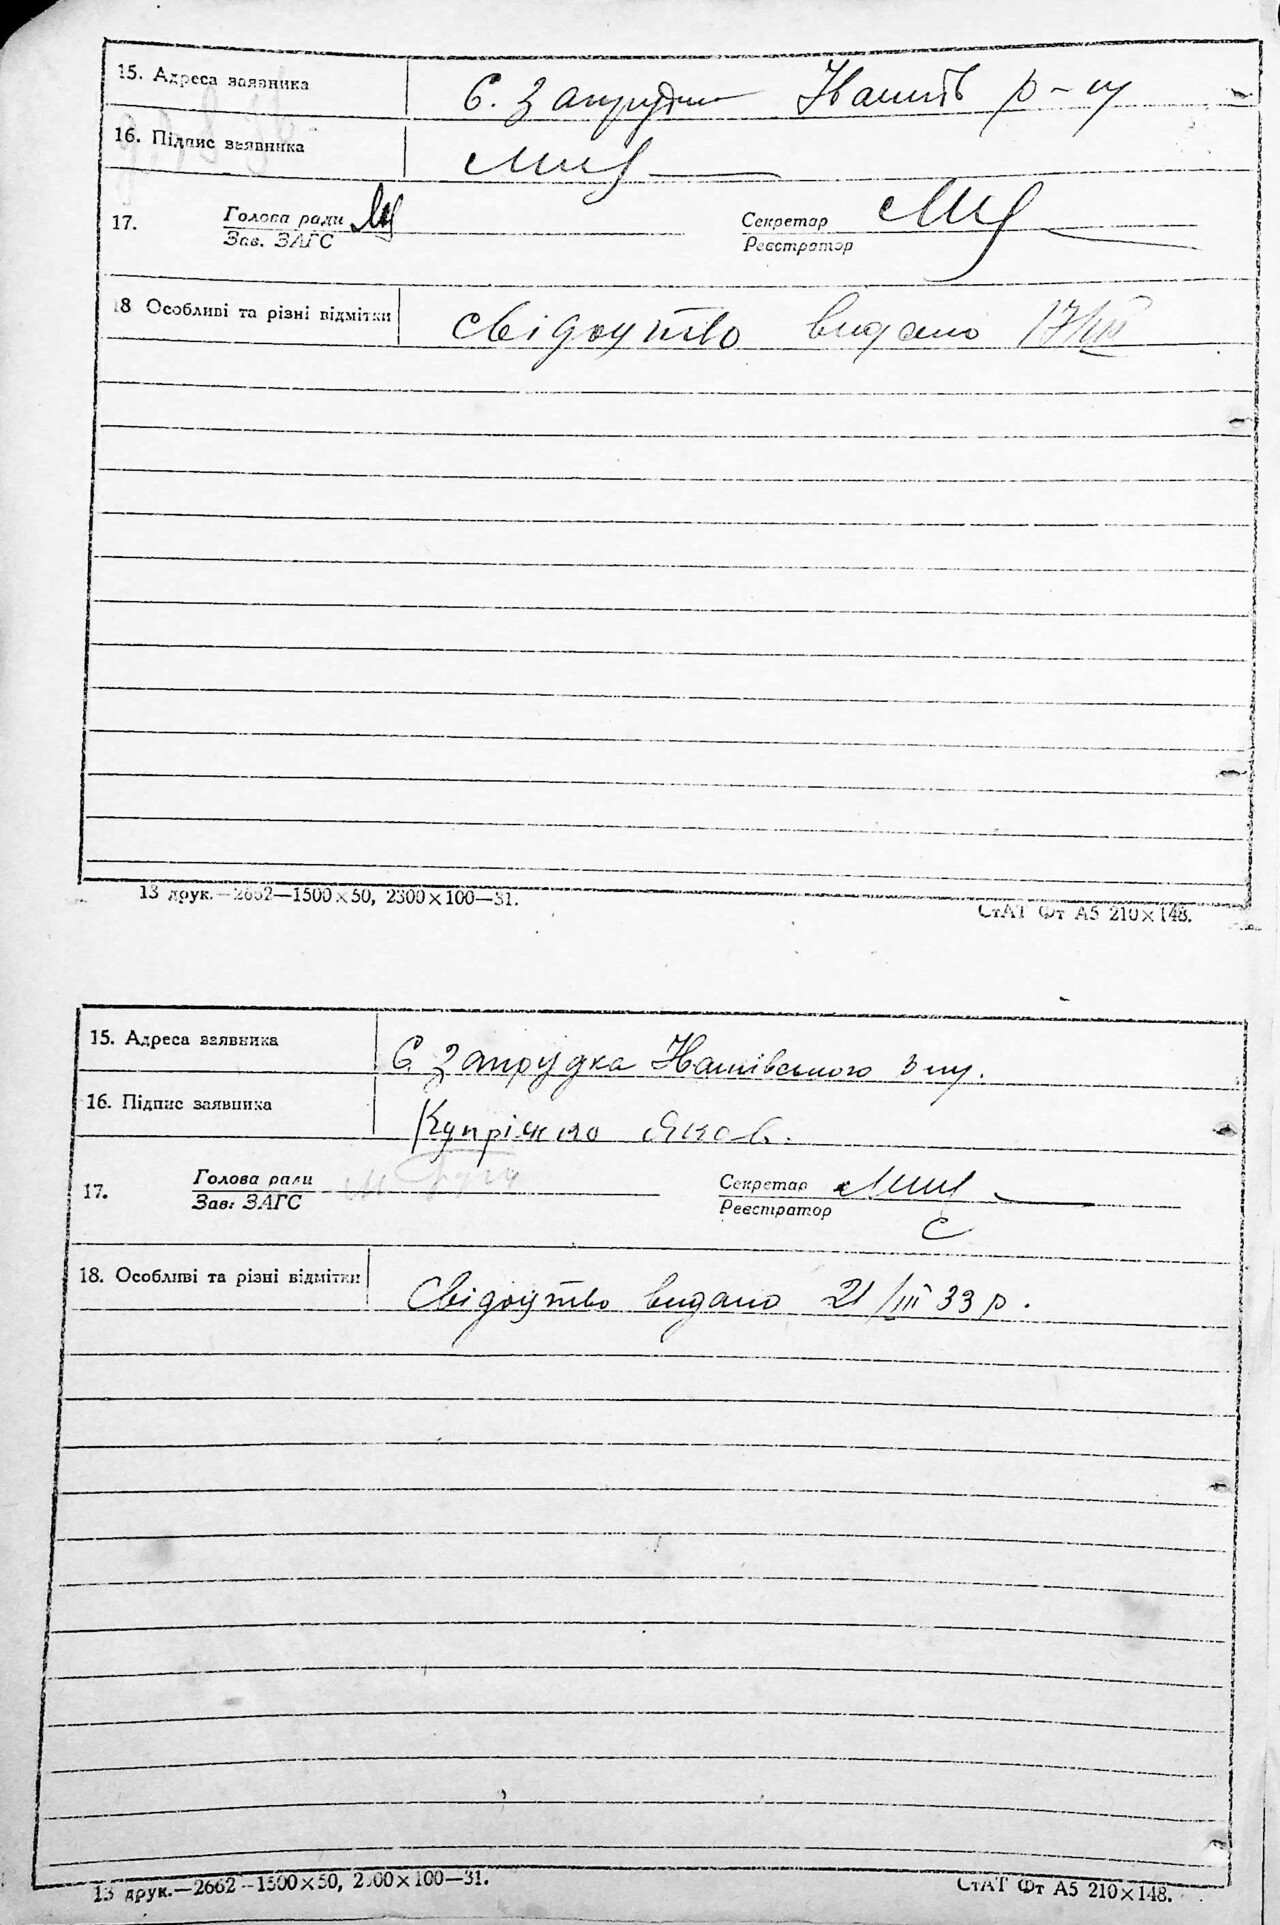 15. Адреса заявника С. Запрудка р-ну
16. Підпис заявника
17. Голова ради Секретар
Зав. ЗАГС Реєстратор
18 Особливі та різні відмітки свідоцтво видано 17/III
13 друк.—2662—1500×50, 2300×100—31. СтАТ Фт А5 210×148.
15. Адреса заявника С Запрудка
16. Підпис заявника Яков.
17. Голова ради Секретар
Зав. ЗАГС Реєстратор
18. Особливі та різні відмітки Свідоцтво видано 21/III 33 р.
13 друк.—2662—1500×50, 2300×100—31. СтАТ Фт А5 210×148.